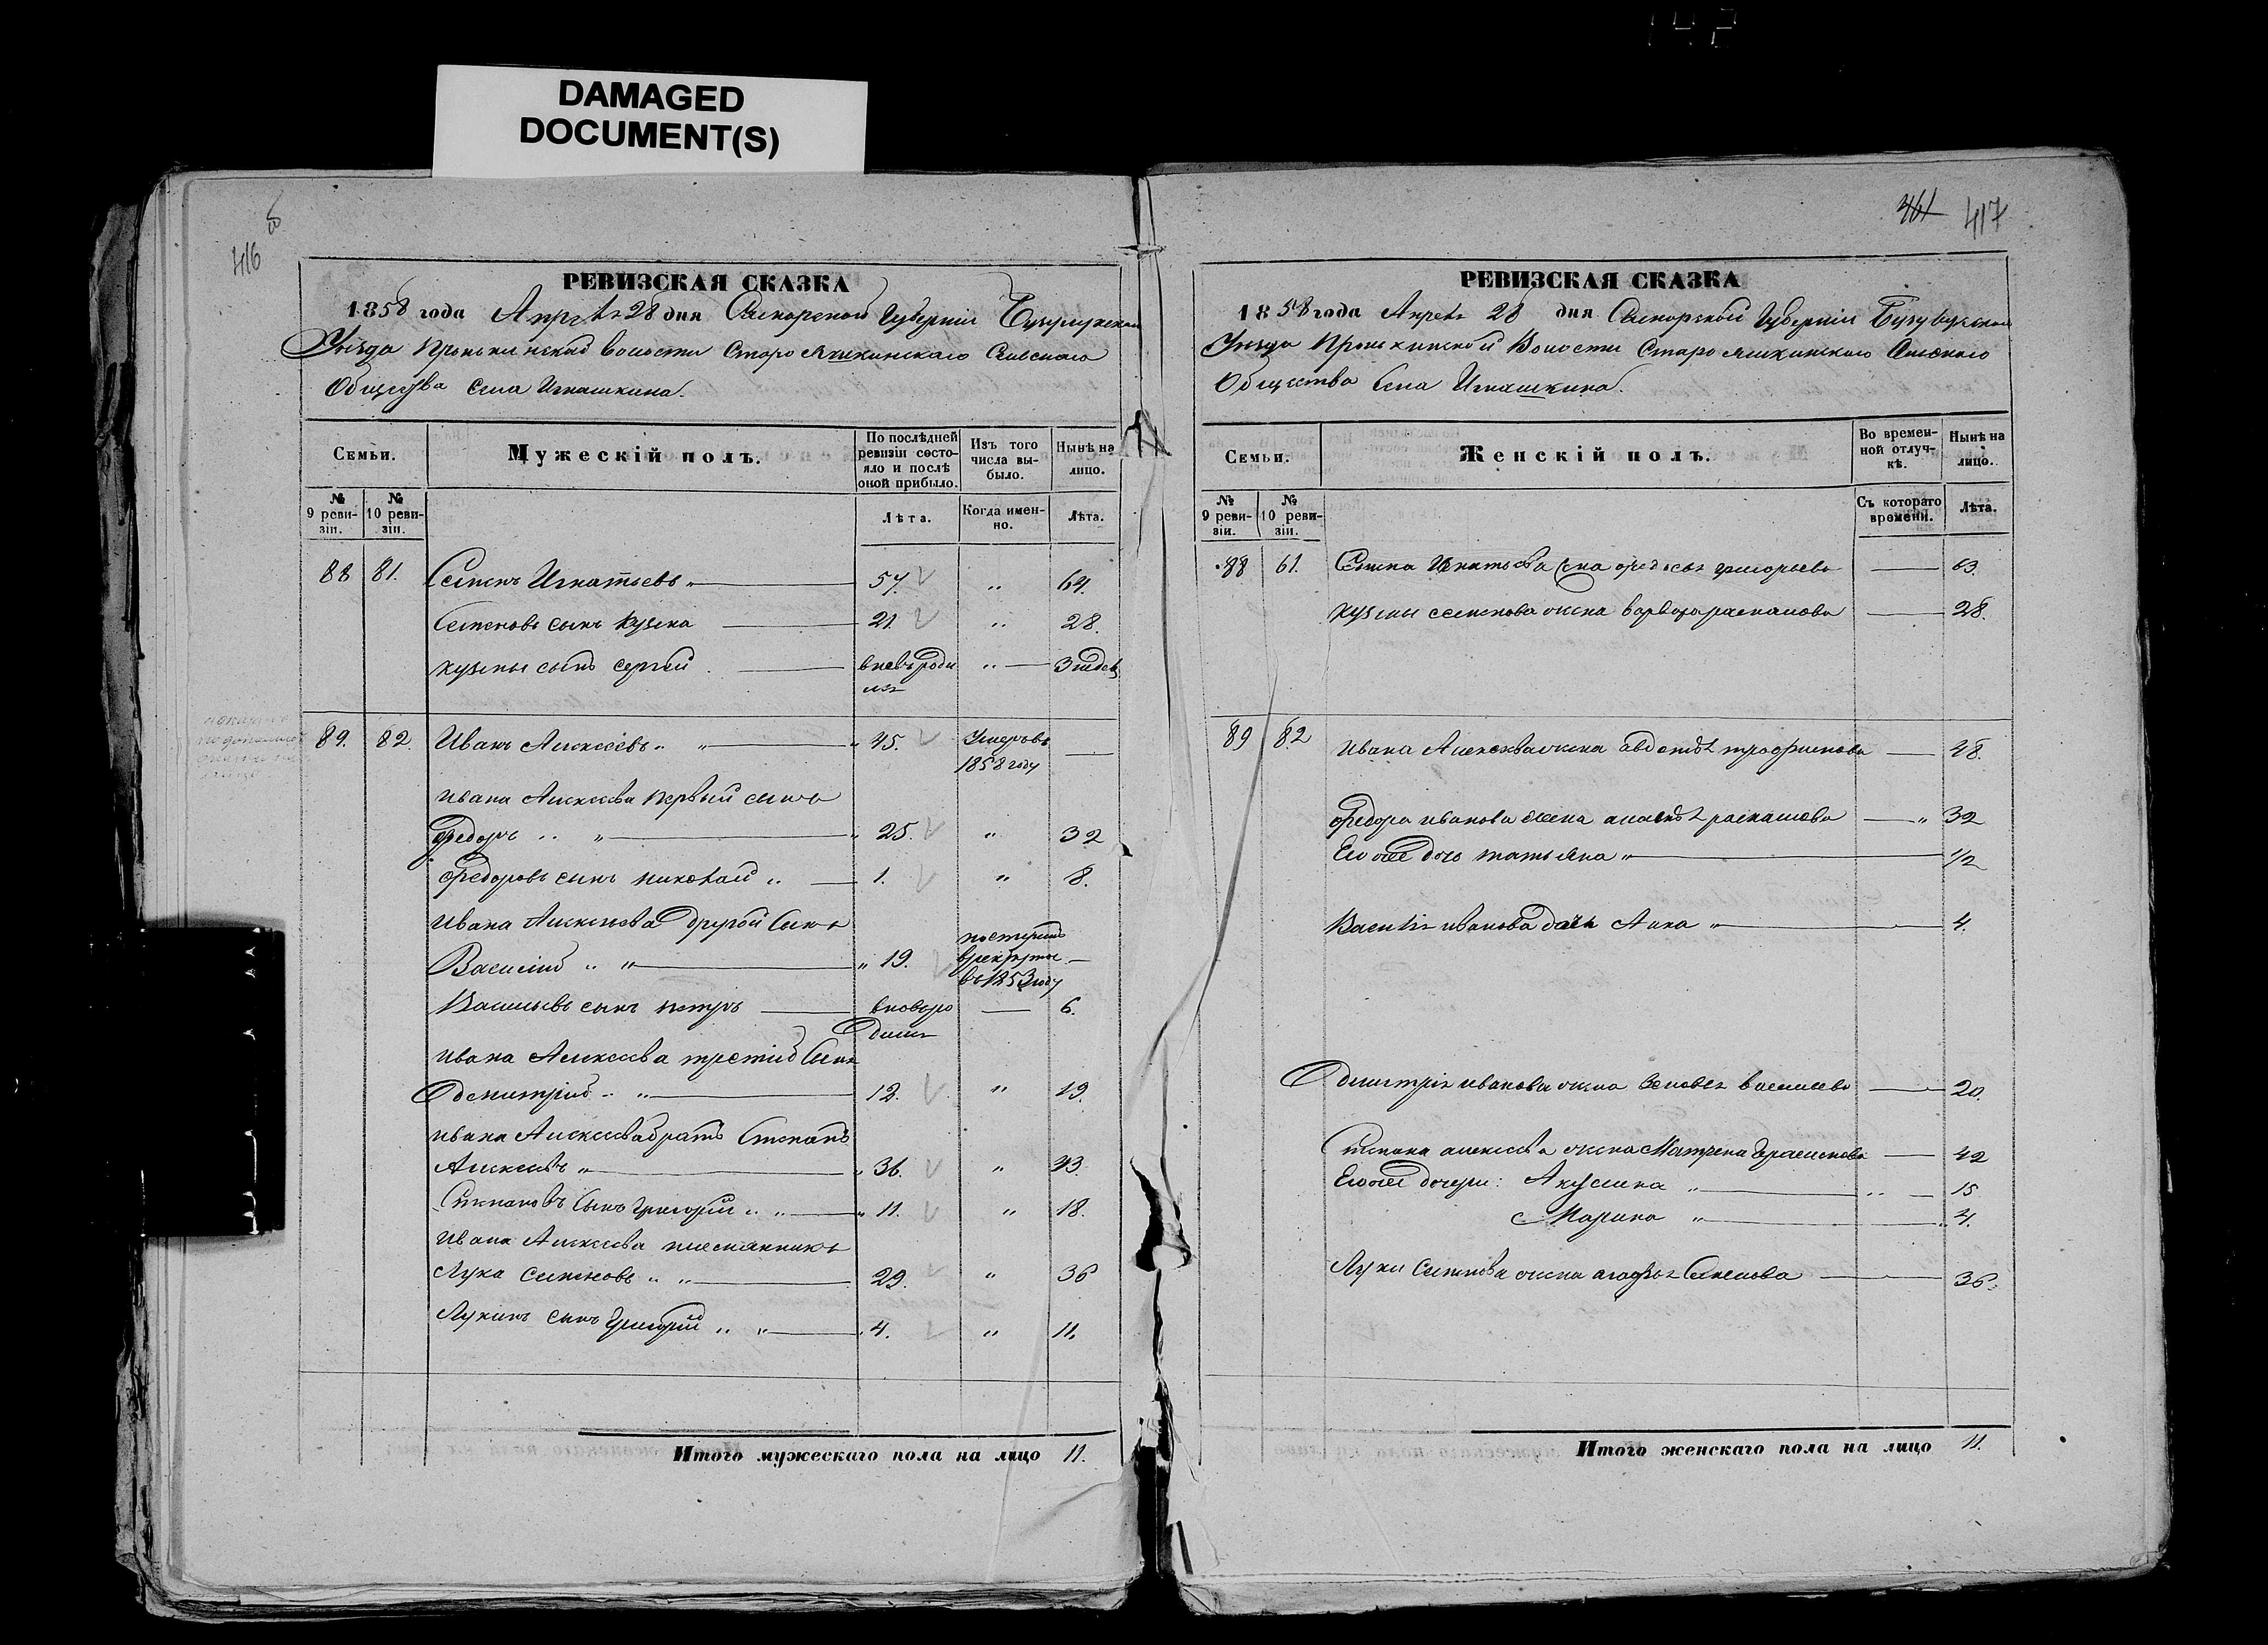 142
DAMAGED
DOCUMENT(S)
416
РЕВИЗСКАЯ СКАЗКА
1858 года Апрель 28 дня Самарской Губерніи Бузулукскаго
Уѣзда Пронькинской волости Старо Яшкинскаго Сельскаго
Общества села Игнашкина.
Семьи.
Мужескій полъ.
По послѣдней ревизіи состояло и послѣ оной прибыло.
Изъ того числа выбыло.
Нынѣ на лицо.
№ 9 ревизіи.
№ 10 ревизіи.
Лѣта.
Когда именно.
Лѣта.
88 81. Семенъ Игнатьевъ 57. " 64.
Семеновъ сынъ Кузма 21 " 28.
Кузмы сынъ Сергей вновь роди " 3 года
лся
89. 82. Иванъ Алексеевъ " " 45. Умеръ въ
1858 году
Ивана Алексеева первый сынъ
Федоръ " " 25. " 32
Федоровъ сынъ Николай " 1. " 8.
Ивана Алексеева другой сынъ
Василий " " 19. поступилъ
в рекруты
въ 1853 году
Васильевъ сынъ Петръ вновь ро 6.
дился
Ивана Алексеева третий сынъ
Дмитрий " " 12. " 19.
Ивана Алексеева братъ Степанъ
Алексеевъ " 36. " 43.
Степановъ сынъ Григорий " " 11. " 18.
Ивана Алексеева племянникъ
Лука Семеновъ " " 29. " 36
Лукинъ сынъ Григорий " " 4. " 11.
Итого мужескаго пола на лицо 11.
461 417
РЕВИЗСКАЯ СКАЗКА
1858 года Апрель 28 дня Самарской Губерніи Бузулукскаго
Уѣзда Пронькинской Волости Старо Яшкинскаго Сельскаго
Общества села Игнашкина.
Семьи.
Женскій полъ.
Во временной отлучкѣ.
Нынѣ на лицо.
№ 9 ревизіи.
№ 10 ревизіи.
Съ котораго времени.
Лѣта.
88 81. Семена Игнатьева жена Федосья Григорьева 63.
Кузмы Семенова жена Варвара 28.
89 82 Ивана Алексеева жена Авдотья Трофимова 48.
Федора Иванова жена 32
Его же дочь Татьяна " 1/2
Василья Иванова дочь Анна " 4.
Дмитрия Иванова жена Зеновья Васильева 20.
Степана Алексеева жена Матрена Герасимова 42
Его же дочери: Акулина " 15
Марина " 4.
Луки Семенова жена Агафья Семенова 36.
Итого женскаго пола на лицо 11.